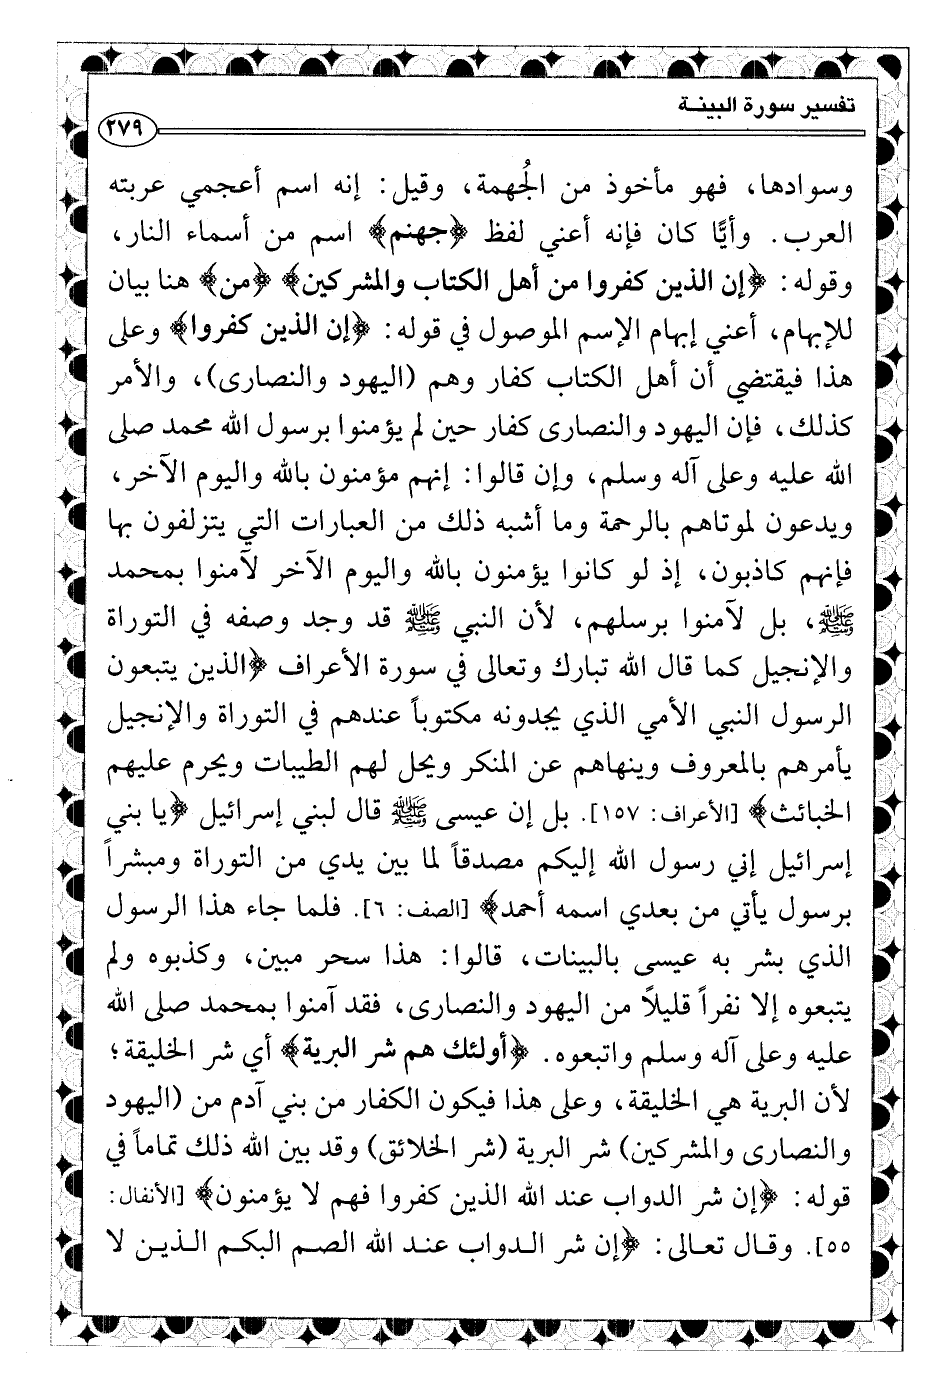 تفسير سورة البينة
٢٧٩
وسوادها، فهو مأخوذ من الجُهمة، وقيل: إنه اسم أعجمي عربته
العرب. وأيًّا كان فإنه أعني لفظ ﴿جهنم﴾ اسم من أسماء النار،
وقوله: ﴿إن الذين كفروا من أهل الكتاب والمشركين﴾ ﴿من﴾ هنا بيان
للإبهام، أعني إبهام الإسم الموصول في قوله: ﴿إن الذين كفروا﴾ وعلى
هذا فيقتضي أن أهل الكتاب كفار وهم (اليهود والنصارى)، والأمر
كذلك، فإن اليهود والنصارى كفار حين لم يؤمنوا برسول الله محمد صلى
الله عليه وعلى آله وسلم، وإن قالوا: إنهم مؤمنون بالله واليوم الآخر،
ويدعون لموتاهم بالرحمة وما أشبه ذلك من العبارات التي يتزلفون بها
فإنهم كاذبون، إذ لو كانوا يؤمنون بالله واليوم الآخر لآمنوا بمحمد
ﷺ، بل لآمنوا برسلهم، لأن النبي ﷺ قد وجد وصفه في التوراة
والإنجيل كما قال الله تبارك وتعالى في سورة الأعراف ﴿الذين يتبعون
الرسول النبي الأمي الذي يجدونه مكتوباً عندهم في التوراة والإنجيل
يأمرهم بالمعروف وينهاهم عن المنكر ويحل لهم الطيبات ويحرم عليهم
الخبائث﴾ [الأعراف: ١٥٧]. بل إن عيسى ﷺ قال لبني إسرائيل ﴿يا بني
إسرائيل إني رسول الله إليكم مصدقاً لما بين يدي من التوراة ومبشراً
برسول يأتي من بعدي اسمه أحمد﴾ [الصف: ٦]. فلما جاء هذا الرسول
الذي بشر به عيسى بالبينات، قالوا: هذا سحر مبين، وكذبوه ولم
يتبعوه إلا نفراً قليلاً من اليهود والنصارى، فقد آمنوا بمحمد صلى الله
عليه وعلى آله وسلم واتبعوه. ﴿أولئك هم شر البرية﴾ أي شر الخليقة؛
لأن البرية هي الخليقة، وعلى هذا فيكون الكفار من بني آدم من (اليهود
والنصارى والمشركين) شر البرية (شر الخلائق) وقد بين الله ذلك تماماً في
قوله: ﴿إن شر الدواب عند الله الذين كفروا فهم لا يؤمنون﴾ [الأنفال:
٥٥]. وقال تعالى: ﴿إن شر الدواب عند الله الصم البكم الذين لا